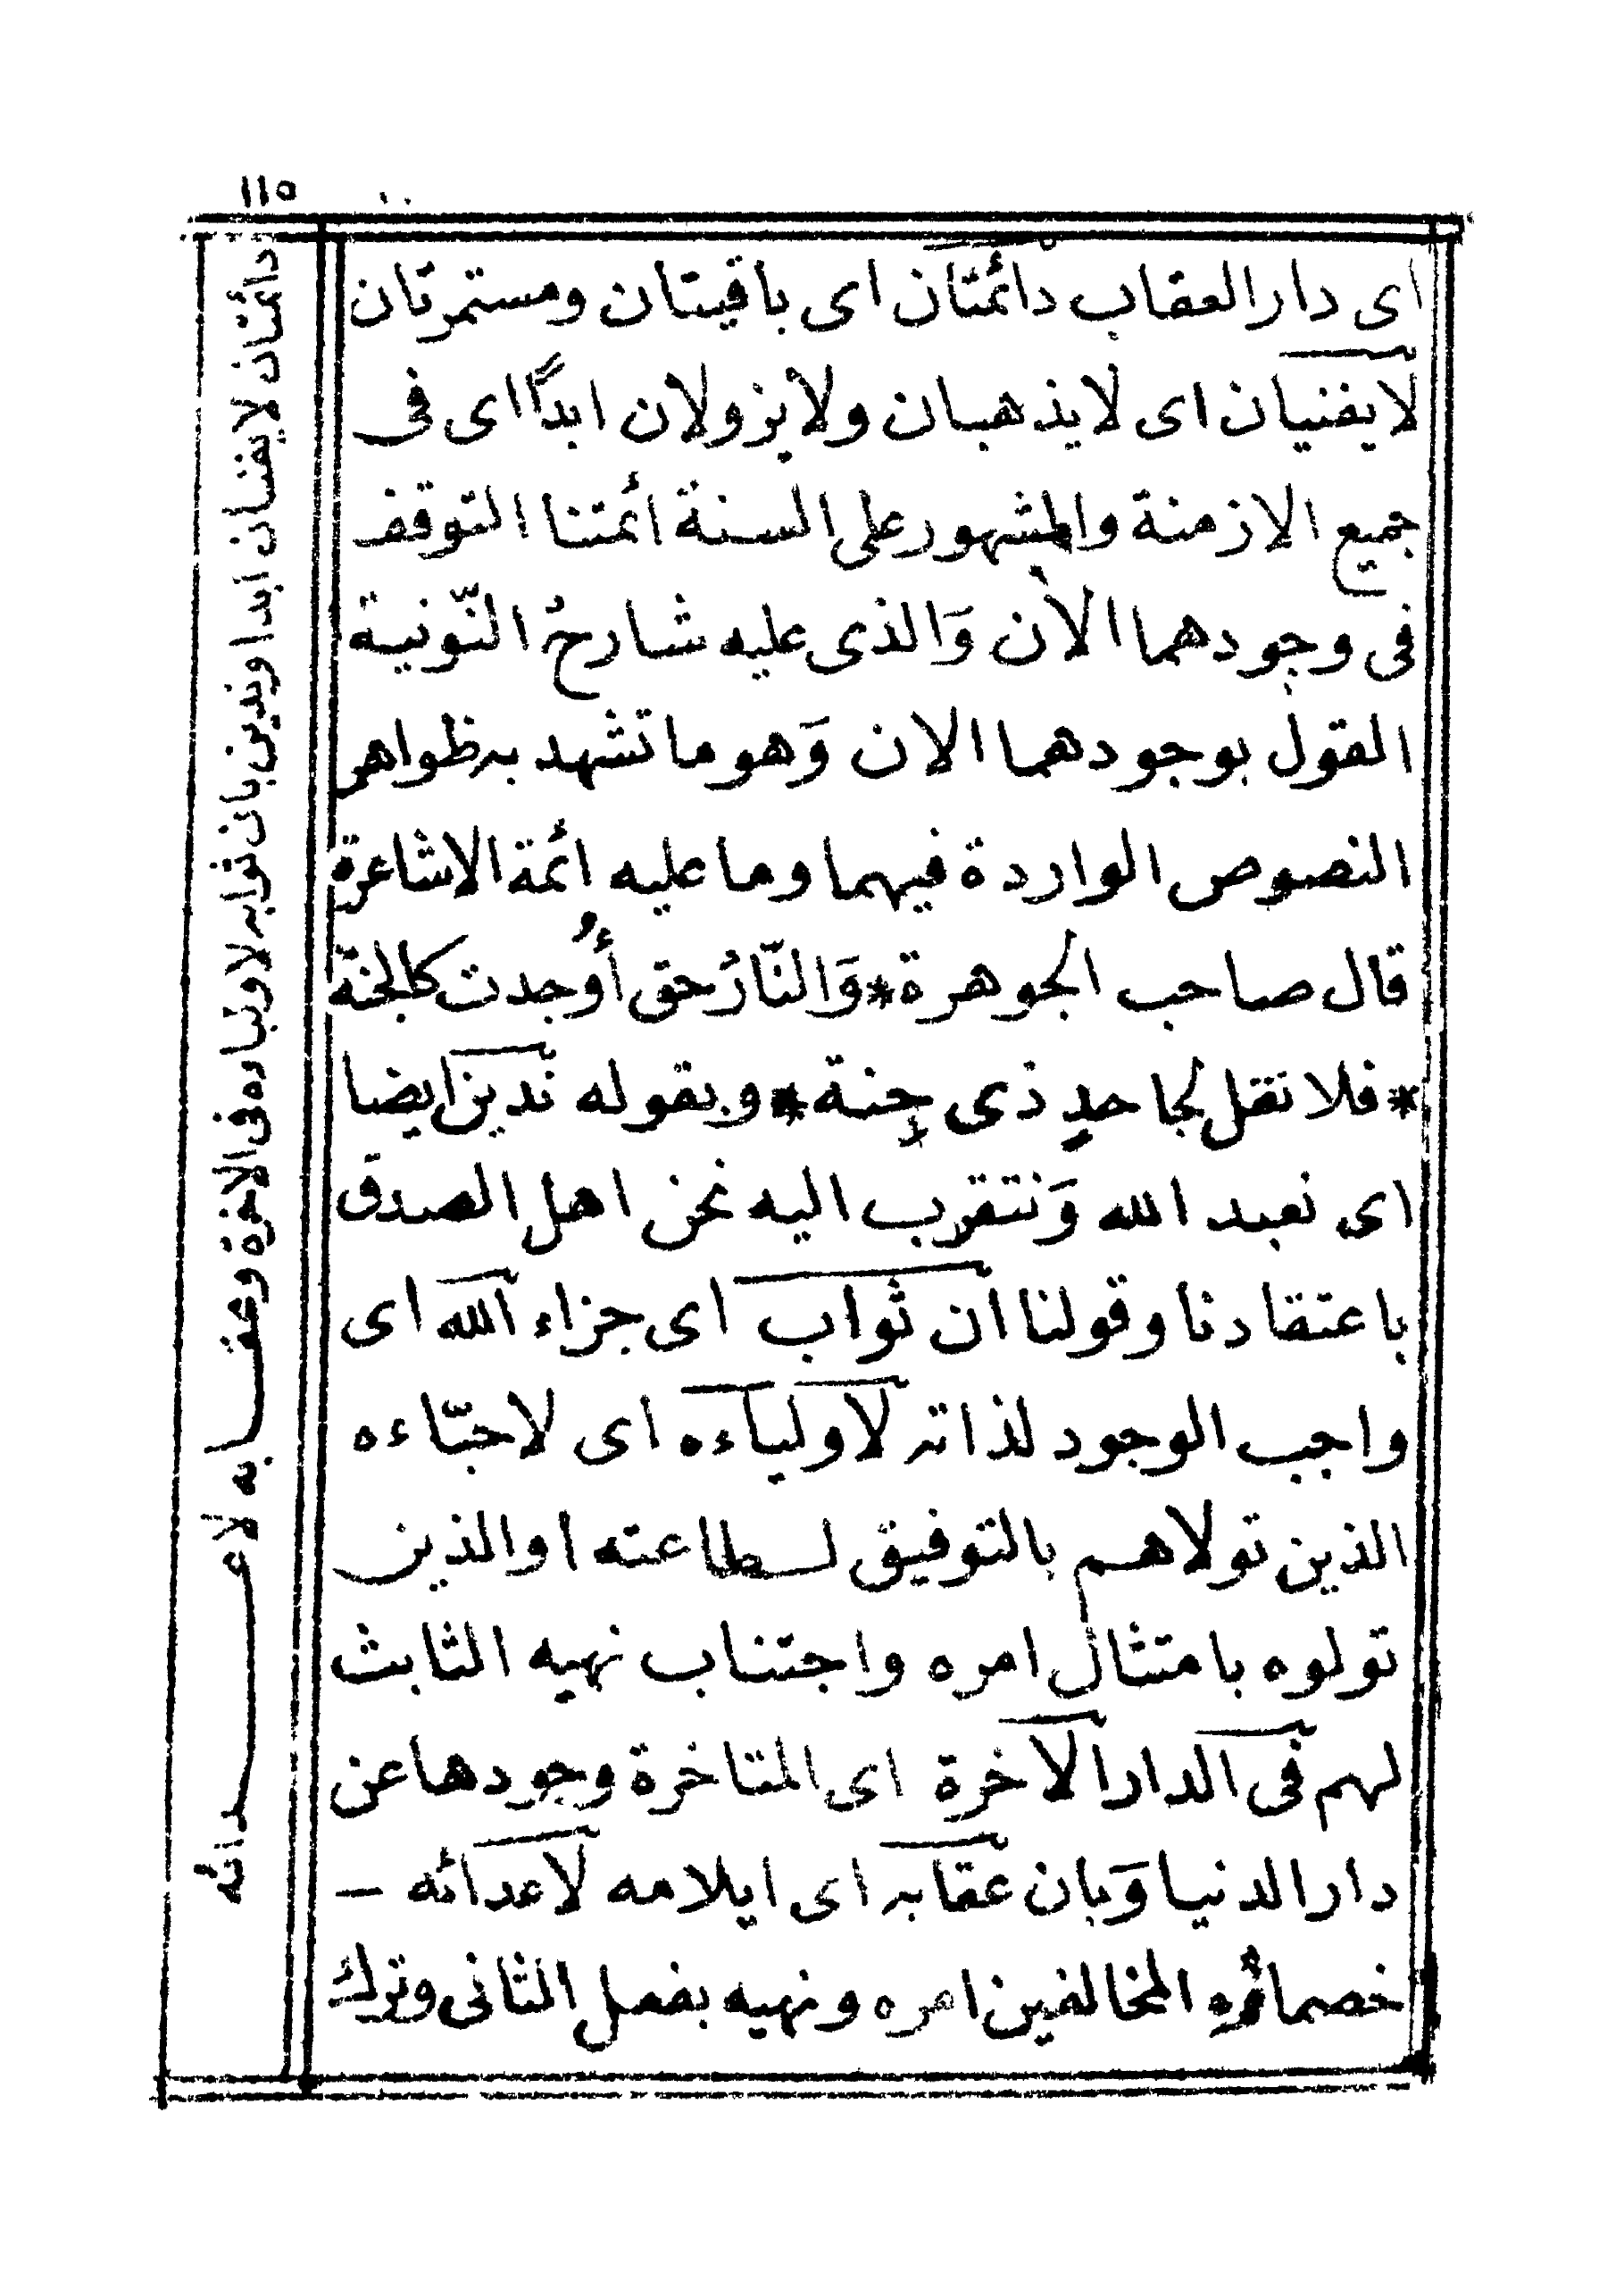 ١١٥
اى دار العقاب دائمتان اى باقيتان ومستمرتان
لا يفنيان اى لا يذهبان ولا يزولان ابدًا اى فى
جميع الازمنة والمشهور على السنة ائمتنا التوقف
فى وجودهما الان وَالذى عليه شارحُ النّونية
القول بوجودهما الان وَهو ما تشهد به ظواهر
النصوص الواردة فيهما وما عليه ائمة الاشاعرة
قال صاحب الجوهرة * وَالنّارُ حق أُوجدت كالجنّة
* فلا تقل لجاحدٍ ذى جِنة * وبقوله ندين ايضا
اى نعبد الله وَنتقرب اليه نحن اهل الصدق
باعتقادنا وقولنا ان ثواب اى جزاء الله اى
واجب الوجود لذاته لاولياءه اى لاحبّاءه
الذين تولاهم بالتوفيق لطاعته او الذين
تولوه بامتثال امره واجتناب نهيه الثابث
لهم فى الدار الاخرة اى المتاخرة وجودها عن
دار الدنيا وَبان عقابه اى ايلامه لاعدائه –
خصمائه المخالفين امره ونهيه بفعل الثانى وترك
دائمتان لا يفنيان ابدا وندين بان ثوابه لاولياءه فى الاخرة وعقابه لاعدائه